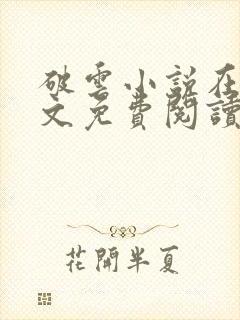 破雲小説在
文免費閱讀
花開半夏